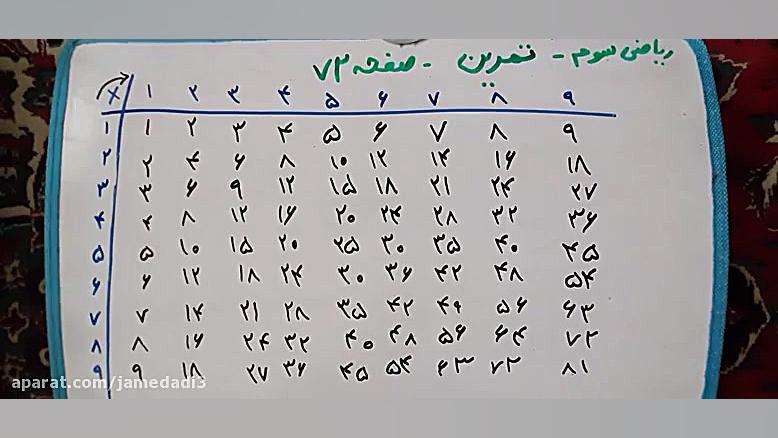 ریاضی سوم - تمرین - صفحه ۷۳
× ۱ ۲ ۳ ۴ ۵ ۶ ۷ ۸ ۹
۱ ۱ ۲ ۳ ۴ ۵ ۶ ۷ ۸ ۹
۲ ۲ ۴ ۶ ۸ ۱۰ ۱۲ ۱۴ ۱۶ ۱۸
۳ ۳ ۶ ۹ ۱۲ ۱۵ ۱۸ ۲۱ ۲۴ ۲۷
۴ ۴ ۸ ۱۲ ۱۶ ۲۰ ۲۴ ۲۸ ۳۲ ۳۶
۵ ۵ ۱۰ ۱۵ ۲۰ ۲۵ ۳۰ ۳۵ ۴۰ ۴۵
۶ ۶ ۱۲ ۱۸ ۲۴ ۳۰ ۳۶ ۴۲ ۴۸ ۵۴
۷ ۷ ۱۴ ۲۱ ۲۸ ۳۵ ۴۲ ۴۹ ۵۶ ۶۳
۸ ۸ ۱۶ ۲۴ ۳۲ ۴۰ ۴۸ ۵۶ ۶۴ ۷۲
۹ ۹ ۱۸ ۲۷ ۳۶ ۴۵ ۵۴ ۶۳ ۷۲ ۸۱
aparat.com/jamedadi3